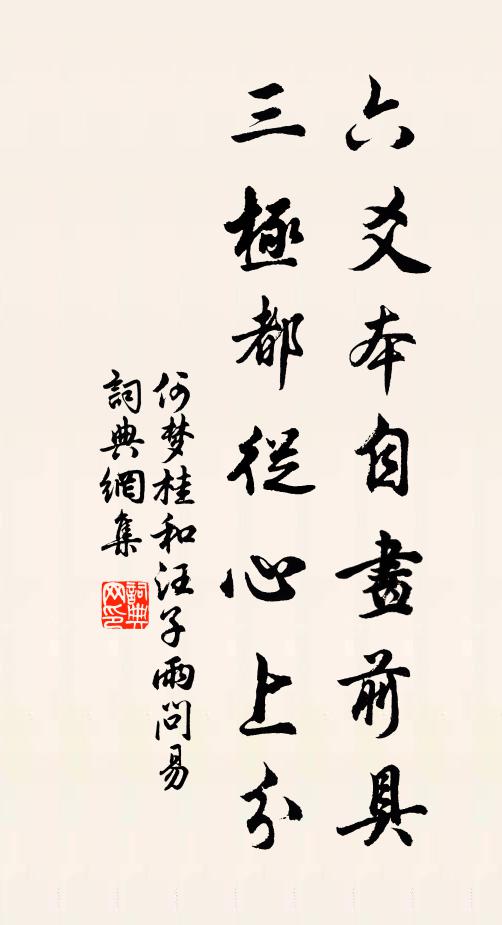 六爻本自畫前具
三極都從心上分
何梦桂和汪子雨問易
詞典網集
詞典网印